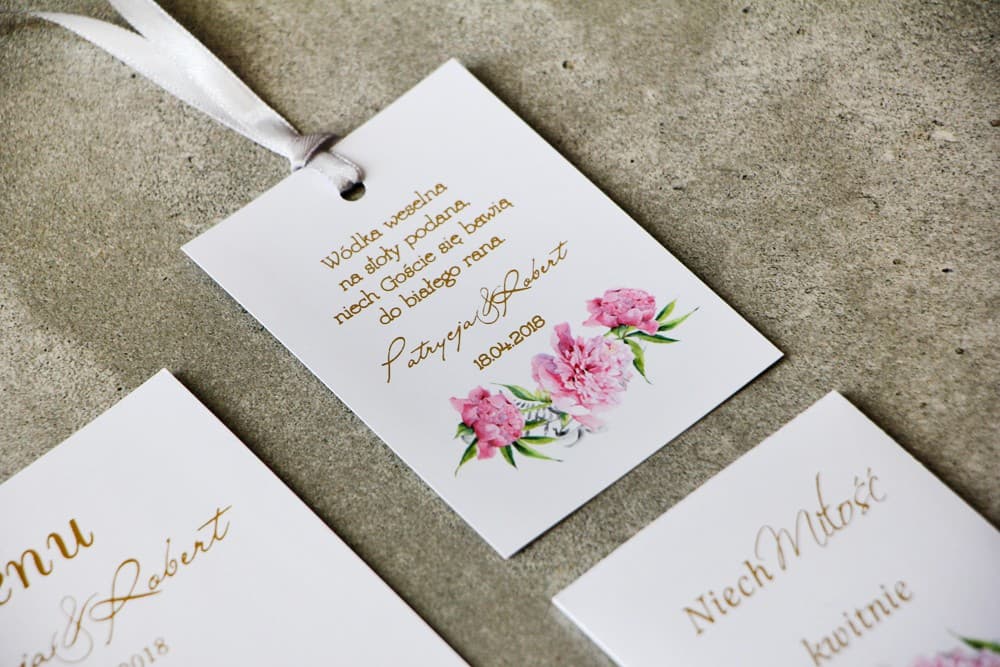 Wódka weselna
na stoły podana,
niech Goście się bawią
do białego rana.
Patrycja & Robert
18.04.2018
enu
cja & Robert
2018
Niech Miłość
kwitnie